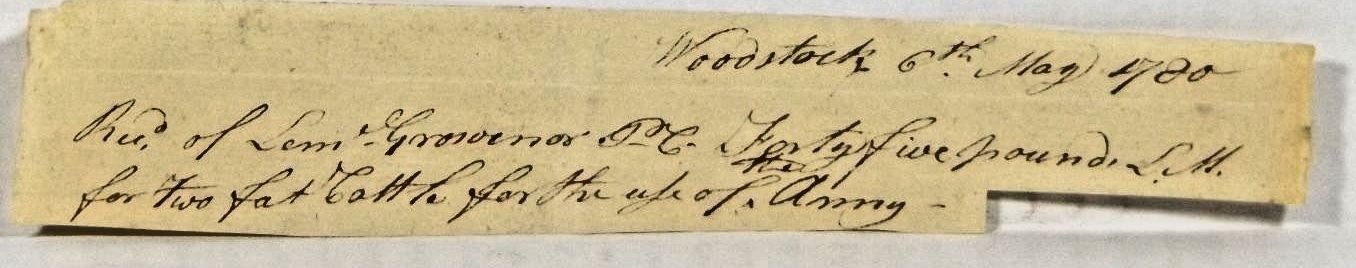 Woodstock 6th. May 1780
Recd. of Leml. Grosvenor P.C. Forty five pounds L.M.
for two fat Cattle for the use of the Army -